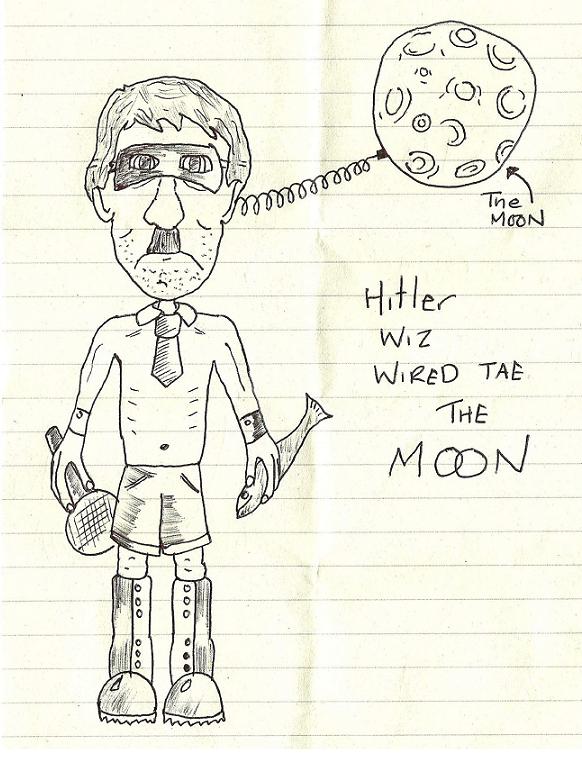 The
MOON
Hitler
WIZ
WIRED TAE
THE
MOON